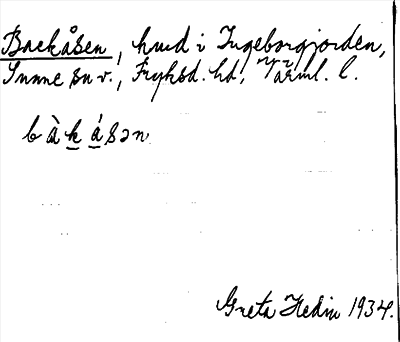 Backåsen, hmd i Ingeborgjorden,
Sunne sn v., Fryksd. hd, Värml. l.
bàkåsən
Greta Hedin 1934.